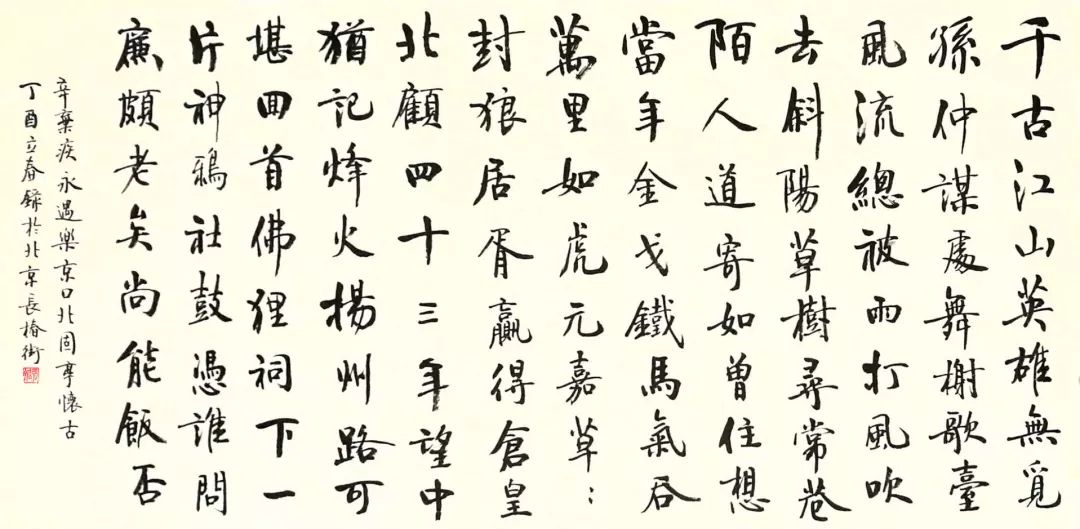 千古江山英雄無覓
孫仲謀處舞榭歌臺
風流總被雨打風吹
去斜陽草樹尋常巷
陌人道寄如曾住想
當年金戈鐵馬氣吞
萬里如虎元嘉草：
封狼居胥贏得倉皇
北顧四十三年望中
猶記烽火揚州路可
堪回首佛狸祠下一
片神鴉社鼓憑誰問
廉頗老矣尚能飯否
辛棄疾永遇樂京口北固亭懷古
丁酉立春錄於北京長椿街